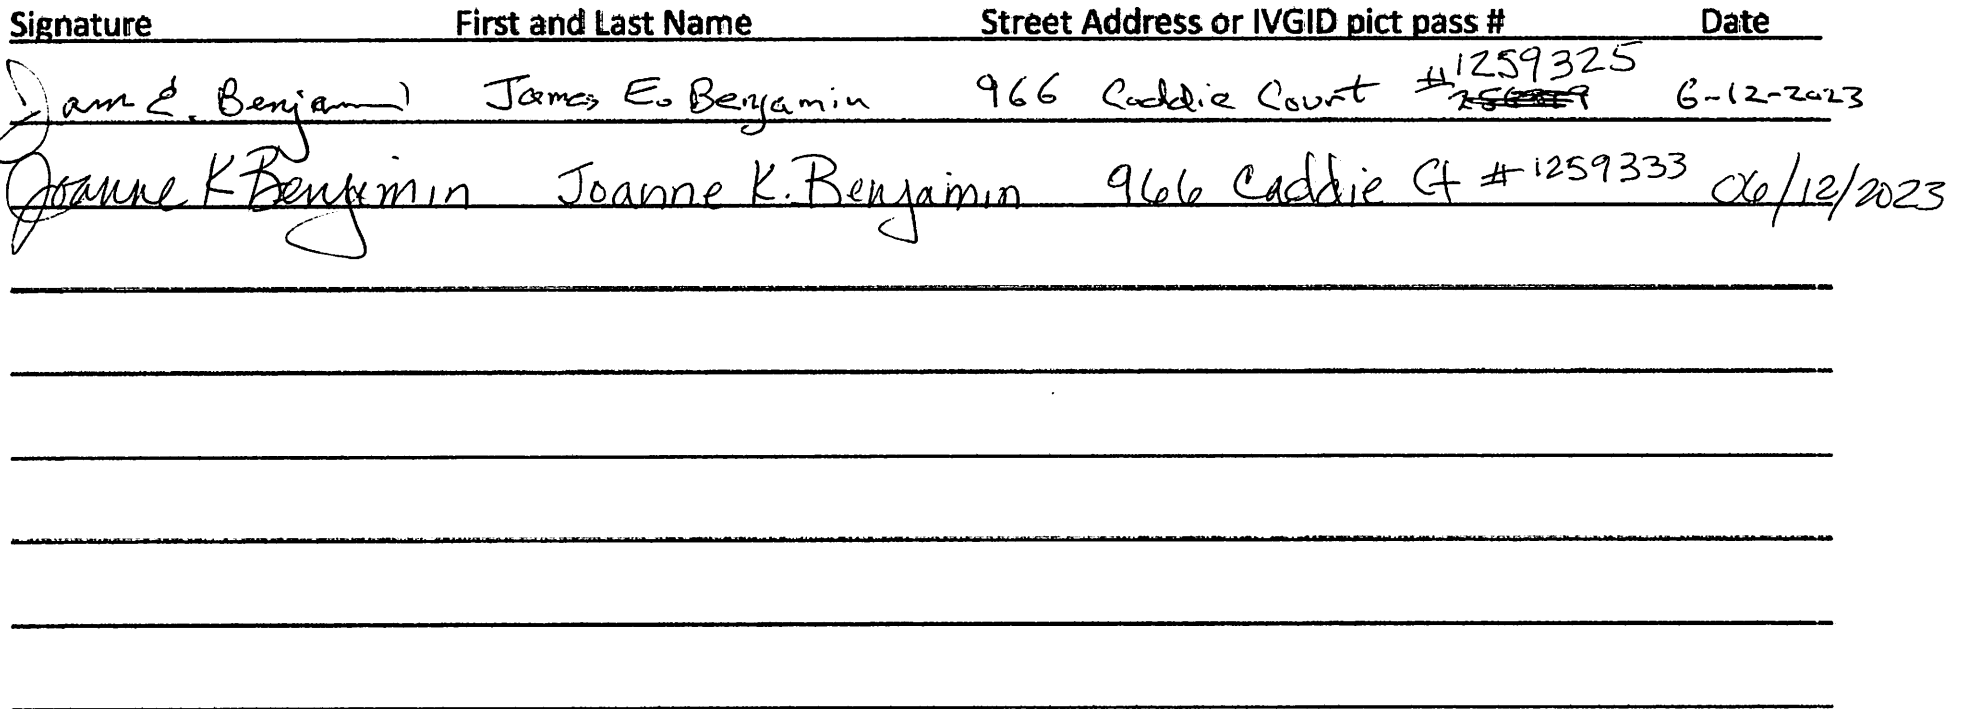 Signature First and Last Name Street Address or IVGID pict pass # Date
James E. Benjamin James E. Benjamin 966 Caddie Court #1259325 6-12-2023
Joanne K Benjamin Joanne K. Benjamin 966 Caddie Ct #1259333 06/12/2023